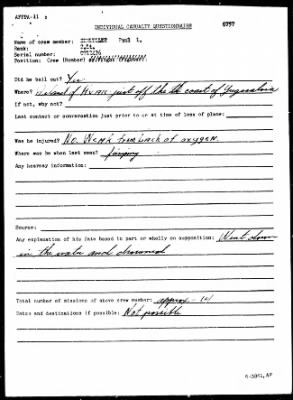 AFPPA-11
INDIVIDUAL CASUALTY QUESTIONNAIRE
Name of crew member: Paul L.
Rank:
Serial number:
Position: Crew (Bomber)
Did he bail out? Yes
Where? Island of just off the coast of Yugoslavia
If not, why not?
Last contact or conversation just prior to or at time of loss of plane:
Was he injured? No. Weak from lack of oxygen.
Where was he when last seen? jumping
Any hearsay information:
Source:
Any explanation of his fate based in part or wholly on supposition: Went down
in the water and drowned
Total number of missions of above crew member: approx - 14
Dates and destinations if possible: Not possible